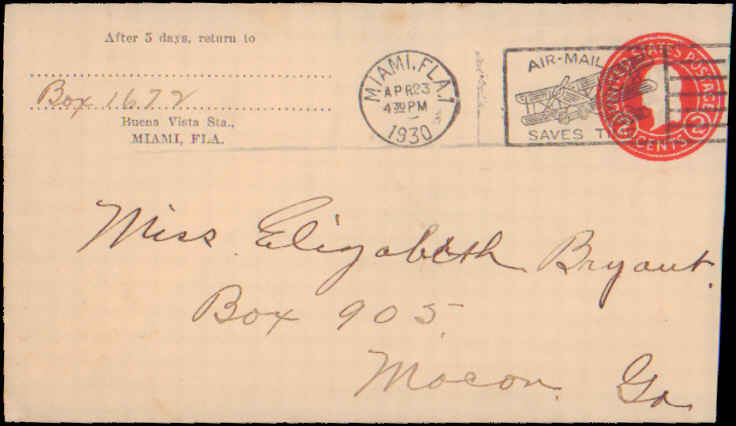 After 5 days, return to
Box 1672
Buena Vista Sta.,
MIAMI, FLA.
MIAMI, FLA. 1
APR 23
4 30 PM
1930
AIR-MAIL
SAVES
UNITED STATES POSTAGE
2 CENTS 2
Miss Elizabeth Bryant.
Box 905
Macon. Ga